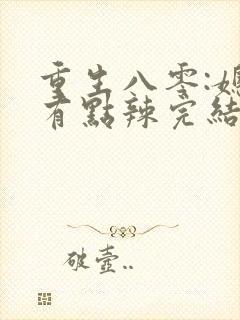 重生八零:媳
有點辣完結
破壺..